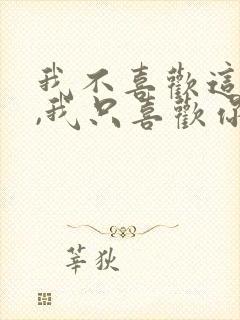 我不喜歡這
,我只喜歡你
莘狄